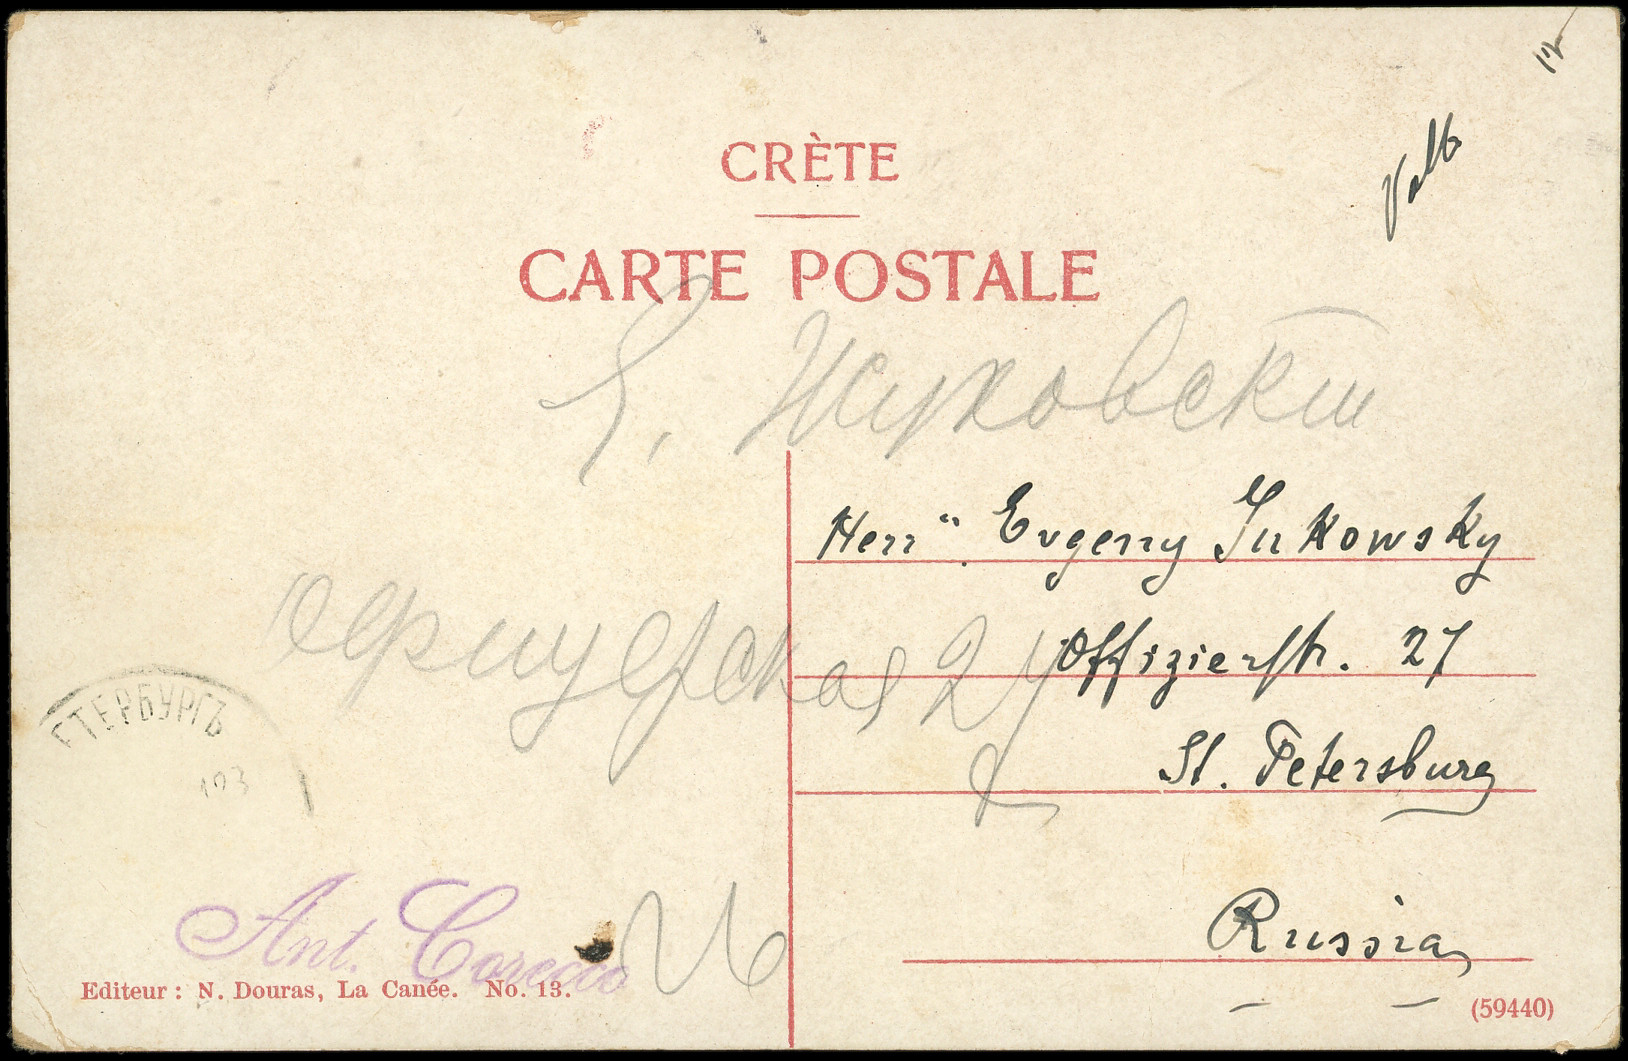 CRÈTE
CARTE POSTALE
Жуковскій
Herr Evgeny Jukowsky
Offizierstr. 27
St. Petersburg
Russia
ЕТЕРБУРГЪ
Ant. Corecco
Editeur : N. Douras, La Canée. No. 13.
(59440)